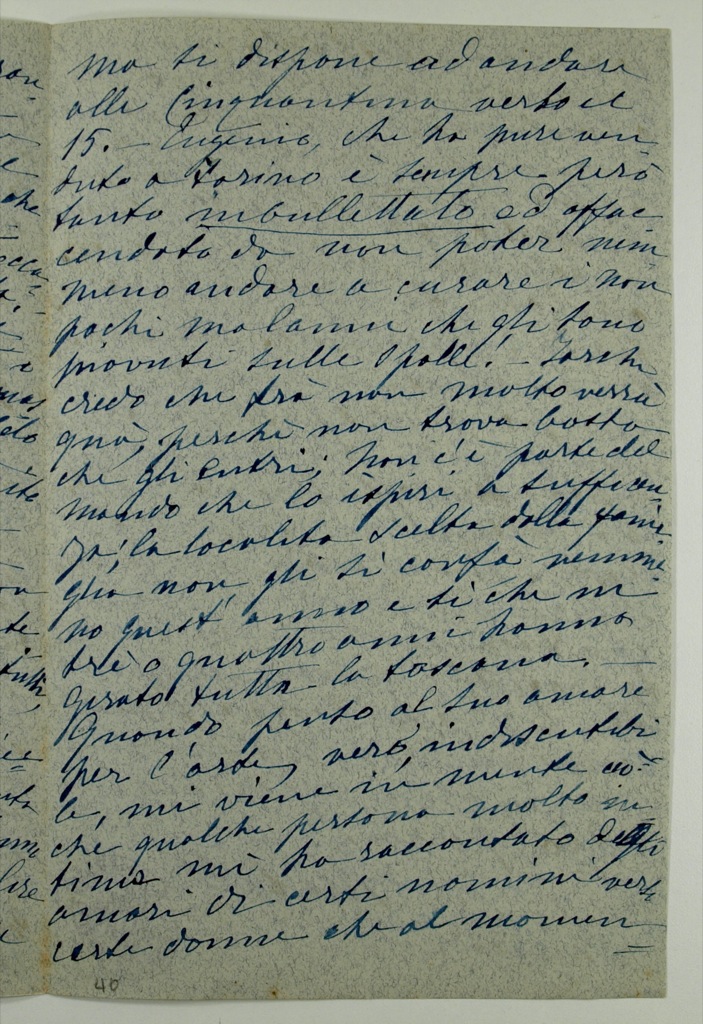 ma si dispone ad andare
alla Cinquantina verso il
15. – Eugenio, che ha pure ven-
duto a Torino è sempre però
tanto imbullettato ed affac-
cendato da non poter nem
meno andare a curare i non
pochi malanni che gli sono
piovuti sulle spalle! –
credo che frà non molto verrà
quà, perchè non trova posto
che gli entri; non c'è parte del
mondo che lo ispiri a sufficien
za; la località scelta dalla fami-
glia non gli si confà nemme-
no quest'anno e sì che in
trè o quattro anni hanno
girato tutta la toscana. –
Quando penso al suo amore
per l'arte, vero, indiscutibi
le, mi viene in mente ciò
che qualche persona molto in
tima mi ha raccontato degli
amori di certi uomini verso
certe donne che al momen
=
40